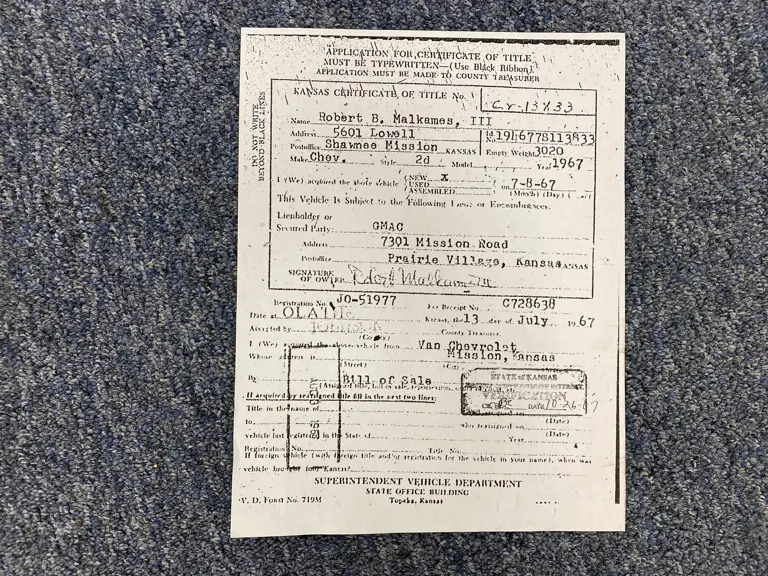 APPLICATION FOR CERTIFICATE OF TITLE
MUST BE TYPEWRITTEN—(Use Black Ribbon)
APPLICATION MUST BE MADE TO COUNTY TREASURER
DO NOT WRITE
BEYOND BLACK LINES
KANSAS CERTIFICATE OF TITLE No.
Name Robert B. Malkames, III
Address 5601 Lowell Id. No. 194677S113833
Postoffice Shawnee Mission KANSAS Empty Weight 3020
Make Chev. Style 2d Model Year 1967
I (We) acquired the above vehicle (NEW X
(USED on 7-8-67
(ASSEMBLED (Month) (Day)
This Vehicle Is Subject to the Following Liens or Encumbrances.
Lienholder or
Secured Party: GMAC
Address 7301 Mission Road
Postoffice Prairie Village, Kansas KANSAS
SIGNATURE
OF OWNER Robert Malkames III
Registration No. JO-51977 Fee Receipt No. C728638
Date at OLATHE Kansas, the 13 day of July 1967
Accepted by County Treasurer
(County)
I (We) acquired the above vehicle from Van Chevrolet
Whose address is Mission, Kansas
(Street) (City)
By Bill of Sale
(Assigned title, bill of sale, repossession,
STATE of KANSAS
VERIFICATION
DATE 10-26-67
If acquired by reassigned title fill in the next two lines:
Title in the name of (Date)
to who reassigned on (Date)
vehicle last registered in the State of Year
Registration No. Title No.
If foreign vehicle (with foreign title and/or registration for the vehicle in your name), when was
vehicle brought into Kansas?
SUPERINTENDENT VEHICLE DEPARTMENT
STATE OFFICE BUILDING
Topeka, Kansas
V. D. Form No. 719M